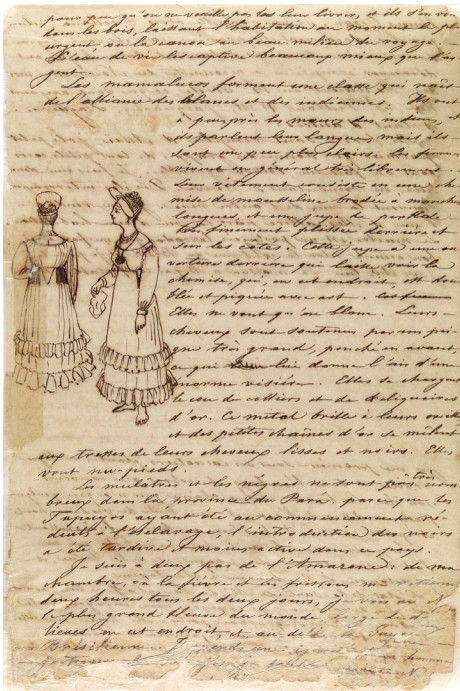 pour peu qu'on ne veuille pas tous leur livrer, et ils s'en vont
dans les bois, laissant l'habitation au moment le plus
urgent, ou le canoa au beau milieu du voyage.
L'eau de vie les captive beaucoup mieux que l'ar-
gent.
Les mamalucos forment une classe qui naît
de l'alliance des blancs et des indiennes. Ils ont
à peu près les mœurs des indiens, et
ils parlent leur langue, mais ils
sont un peu plus clairs. Les femmes
vivent en général très librement.
Leur vêtement consiste en une che
mise de mousseline brodée à manches
longues, et une jupe de
très finement plissée derrière et
sur les côtés. Cette jupe a une ou
verture derrière qui laisse voir la
chemise, qui, en cet endroit, est dou
blée et piquée avec art.
Elles ne vont qu'en blanc. Leurs
cheveux sont soutenus par un pei
gne très grand, penché en avant,
ce qui leur donne l'air d'une
énorme visière. Elles se chargent
le cou de colliers et de reliquaires
d'or. Ce métal brille à leurs oreilles
et des petites chaînes d'or se mêlent
aux tresses de leurs cheveux lisses et noirs. Elles
vont nu-pieds.
Les mulâtres et les nègres ne sont pas très nom
breux dans la province du Pará, parce que les
Tapuyos ayant été au commencement ré-
duits à l'esclavage, l'introduction des noirs
a été tardive, moins active dans ce pays.
Je suis à deux pas de l'Amazone: de ma
chambre, où la fièvre et les frissons me
deux heures tous les deux jours, je vois
le plus grand fleuve du monde large de
lieues en cet endroit et au-delà la